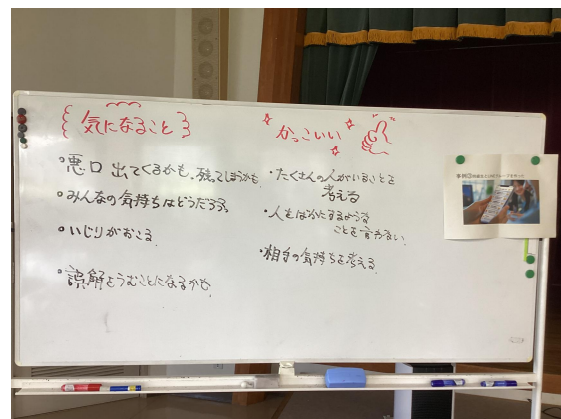 気になること
・悪口 出てくるかも、残ってしまうかも
・みんなの気持ちはどうだろう。
・いじりがおこる
・誤解をうむことになるかも
かっこいい
・たくさんの人がいることを
考える
・人をばかにするような
ことを言わない
・相手の気持ちを考える
事例③